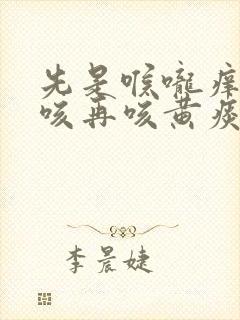 先是喉嚨痒
咳再咳黄痰
李晨婕